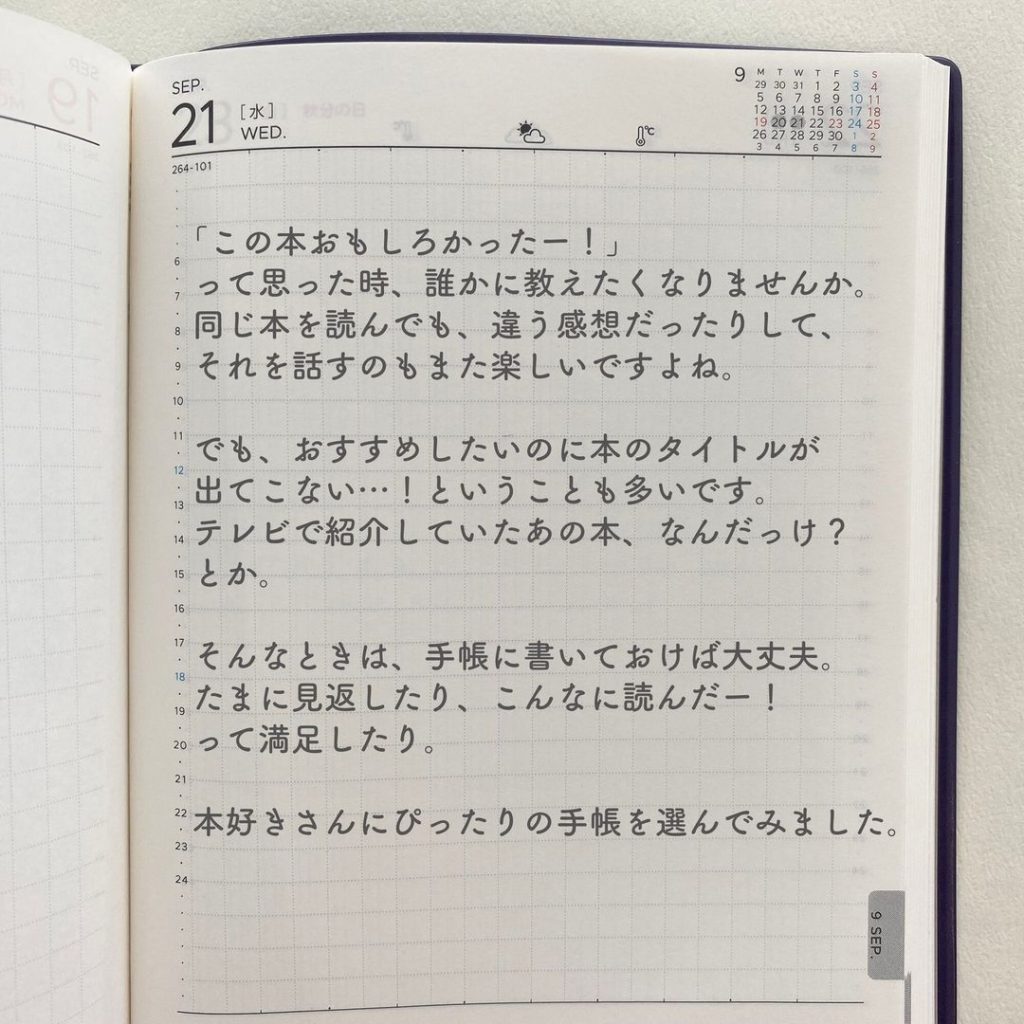 SEP.
21
[水]
WED.
℃
264-101
9
M T W T F S S
29 30 31 1 2 3 4
5 6 7 8 9 10 11
12 13 14 15 16 17 18
19 20 21 22 23 24 25
26 27 28 29 30 1 2
3 4 5 6 7 8 9
「この本おもしろかったー！」
って思った時、誰かに教えたくなりませんか。
同じ本を読んでも、違う感想だったりして、
それを話すのもまた楽しいですよね。
でも、おすすめしたいのに本のタイトルが
出てこない…！ということも多いです。
テレビで紹介していたあの本、なんだっけ？
とか。
そんなときは、手帳に書いておけば大丈夫。
たまに見返したり、こんなに読んだー！
って満足したり。
本好きさんにぴったりの手帳を選んでみました。
6
7
8
9
10
11
12
13
14
15
16
17
18
19
20
21
22
23
24
9 SEP.